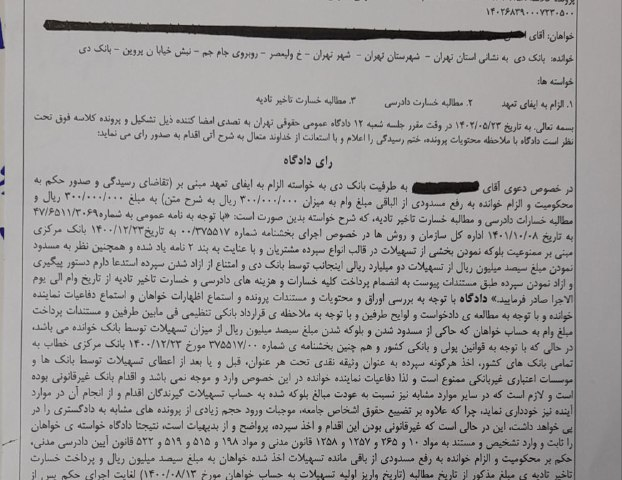 ۱۴۰۲۶۸۳۹۰۰۰۷۲۳۰۵۰۰
خواهان: آقای
خوانده: بانک دی به نشانی استان تهران - شهرستان تهران - شهر تهران - خ ولیعصر - روبروی جام جم - نبش خیابا ن پروین - بانک دی
خواسته ها:
۱. الزام به ایفای تعهد ۲. مطالبه خسارت دادرسی ۳. مطالبه خسارت تاخیر تادیه
بسمه تعالی. به تاریخ ۱۴۰۲/۰۵/۲۳ در وقت مقرر جلسه شعبه ۱۲ دادگاه عمومی حقوقی تهران به تصدی امضا کننده ذیل تشکیل و پرونده کلاسه فوق تحت
نظر است دادگاه با ملاحظه محتویات پرونده، ختم رسیدگی را اعلام و با استعانت از خداوند متعال به شرح آتی اقدام به صدور رای می نماید:
رای دادگاه
در خصوص دعوی آقای به طرفیت بانک دی به خواسته الزام به ایفای تعهد مبنی بر (تقاضای رسیدگی و صدور حکم به
محکومیت و الزام خوانده به رفع مسدودی از الباقی مبلغ وام به میزان ۳۰۰/۰۰۰/۰۰۰ ریال به شرح متن) به مبلغ ۳۰۰/۰۰۰/۰۰۰ ریال و
مطالبه خسارات دادرسی و مطالبه خسارت تاخیر تادیه، که شرح خواسته بدین صورت است: «با توجه به نامه عمومی به شماره ۴۷/۶۵۱۱/۳۰۶۹
به تاریخ ۱۴۰۱/۱۰/۰۸ اداره کل سازمان و روش ها در خصوص اجرای بخشنامه شماره ۰۰/۳۷۵۵۱۷ به تاریخ ۱۴۰۰/۱۲/۲۳ بانک مرکزی
مبنی بر ممنوعیت بلوکه نمودن بخشی از تسهیلات در قالب انواع سپرده مشتریان و با عنایت به بند ۲ نامه یاد شده و همچنین نظر به مسدود
نمودن مبلغ سیصد میلیون ریال از تسهیلات دو میلیارد ریالی اینجانب توسط بانک دی و امتناع از ازاد شدن سپرده استدعا دارم دستور پیگیری
و ازاد نمودن سپرده طبق مستندات پیوست به انضمام پرداخت کلیه خسارات و هزینه های دادرسی و خسارت تاخیر تادیه از تاریخ وام الی یوم
الاجرا صادر فرمایید.» دادگاه با توجه به بررسی اوراق و محتویات و مستندات پرونده و استماع اظهارات خواهان و استماع دفاعیات نماینده
خوانده و با توجه به مطالعه ی دادخواست و لوایح طرفین و با توجه به ملاحظه ی قرارداد بانکی تنظیمی فی مابین طرفین و مستندات پرداخت
مبلغ وام به حساب خواهان که حاکی از مسدود شدن و بلوکه شدن مبلغ سیصد میلیون ریال از میزان تسهیلات توسط بانک خوانده می باشد،
در حالی که با توجه به قوانین پولی و بانکی کشور و هم چنین بخشنامه ی شماره ۳۷۵۵۱۷/۰۰ مورخ ۱۴۰۰/۱۲/۲۳ بانک مرکزی خطاب به
تمامی بانک های کشور، اخذ هرگونه سپرده به عنوان وثیقه نقدی تحت هر عنوان، قبل و یا بعد از اعطای تسهیلات توسط بانک ها و
موسسات اعتباری غیربانکی ممنوع است و لذا دفاعیات نماینده خوانده در این خصوص وارد و موجه نمی باشد و اقدام بانک غیرقانونی بوده
است و لازم است که در سایر موارد مشابه نیز نسبت به عودت مبالغ بلوکه شده به حساب تسهیلات گیرندگان اقدام و از انجام آن در موارد
آینده نیز خودداری نماید، چرا که علاوه بر تضییع حقوق اشخاص جامعه، موجبات ورود حجم زیادی از پرونده های مشابه به دادگستری را در
پی خواهد داشت، این در حالی است که غیرقانونی بودن این اقدام و اخذ سپرده، پرواضح و از بدیهیات است، نتیجتا دادگاه خواسته ی خواهان
را ثابت و وارد تشخیص و مستند به مواد ۱۰ و ۲۶۵ و ۱۲۵۷ و ۱۲۵۸ قانون مدنی و مواد ۱۹۸ و ۵۱۵ و ۵۱۹ و ۵۲۲ قانون آیین دادرسی مدنی،
حکم بر محکومیت و الزام خوانده به رفع مسدودی از باقی مانده تسهیلات اخذ شده خواهان به مبلغ سیصد میلیون ریال و پرداخت خسارت
تاخیر تادیه ی مبلغ مذکور از تاریخ مطالبه (تاریخ واریز اولیه تسهیلات به حساب خواهان مورخ ۱۴۰۰/۰۸/۱۳) لغایت اجرای حکم پس از